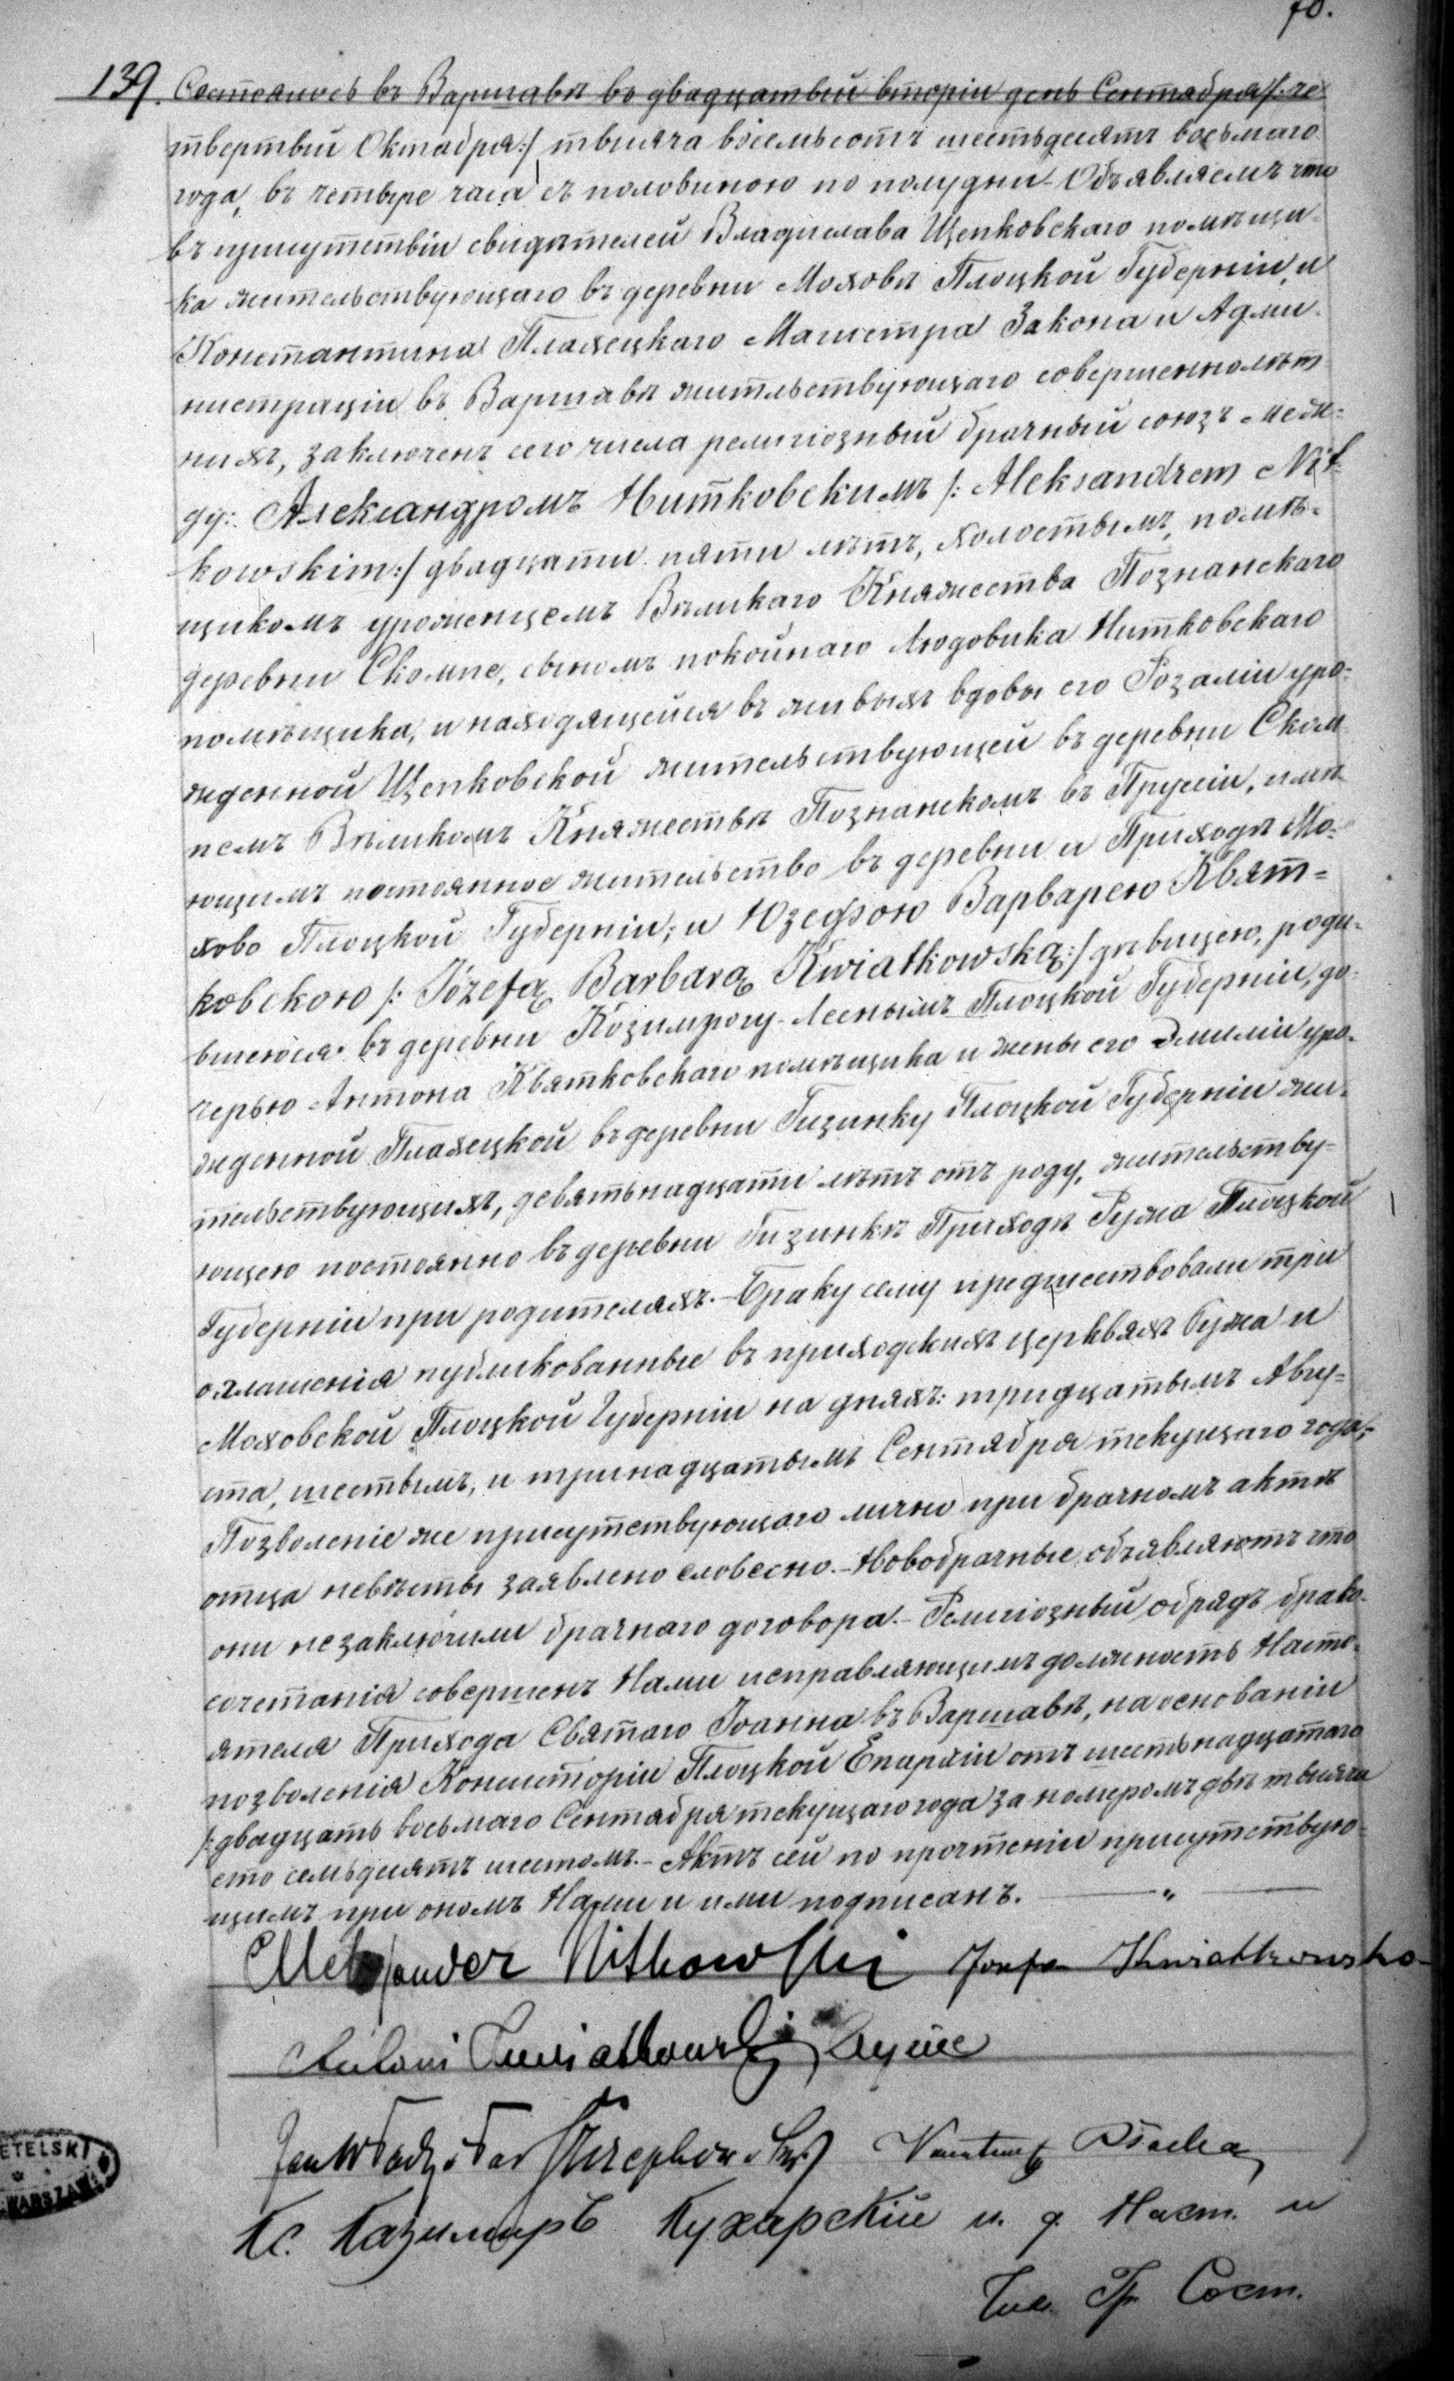 70.
139. Состоялось въ Варшавѣ въ двадцатый вторій день Сентября /: че
твертый Октября :/ тысяча восемьсотъ шестьдесятъ восьмаго
года, въ четыре часа съ половиною по полудни. Объявляемъ что
въ присутствіи свидѣтелей Владислава Щепковскаго помѣщи-
ка жительствующаго въ деревни Моховѣ Плоцкой Губерніи, и
Константина Пląхецкаго Магистра Закона и Адми-
нистраціи въ Варшавѣ жительствующаго совершеннолѣт
нихъ, заключенъ сего числа религіозный брачный союзъ меж-
ду: Александромъ Нитковскимъ /: Aleksandrem Nit-
kowskim :/ двадцати пяти лѣтъ, холостымъ, помѣ-
щикомъ уроженцемъ Вѣликаго Княжества Познанскаго
деревни Скомпе, сыномъ покойнаго Людовика Нитковскаго
помѣщика, и находящейся въ живыхъ вдовы его Розаліи уро-
жденной Щепковской жительствующей въ деревни Ском
пемъ Вѣликомъ Княжествѣ Познанскомъ въ Пруссіи, имѣ
ющимъ постоянное жительство въ деревни и Приходѣ Мо-
хово Плоцкой Губерніи; и Юзефою Варварею Квят-
ковскою /: Józefą Barbarą Kwiatkowską :/ дѣвицею, роди-
вшеюся въ деревни Козимрогу-Леснымъ Плоцкой Губерніи, до-
черью Антона Квятковскаго помѣщика и жены его Эмиліи уро-
жденной Плахецкой въ деревни Гизинку Плоцкой Губерніи жи-
тельствующихъ, девятьнадцати лѣтъ отъ роду, жительству-
ющею постоянно въ деревни Гизинкѣ Приходѣ Ружа Плоцкой
Губерніи при родителяхъ. - Браку сему предшествовали три
оглашенія публикованные въ приходскихъ церквяхъ Ружа и
Моховской Плоцкой Губерніи на дняхъ: тридцатымъ Авгу-
ста, шестымъ, и тринадцатымъ Сентября текущаго года;
Позволеніе же присутствующаго лично при брачномъ актѣ
отца невѣсты заявлено словесно. - Новобрачные объявляютъ что
они не заключили брачнаго договора. - Религіозный обрядъ брако-
сочетанія совершенъ Нами исправляющимъ должность Насто-
ятеля Прихода Святаго Іоанна въ Варшавѣ, на основаніи
позволенія Консисторіи Плоцкой Епархіи отъ шестьнадцатаго
/: двадцать восьмаго Сентября текущаго года за номеромъ двѣ тысячи
сто семьдесятъ шестомъ. - Актъ сей по прочтеніи присутствую-
щимъ при ономъ Нами и ими подписанъ.
Aleksander Nitkowski Józefa Kwiatkowska
Antoni Kwiatkowski
Jan Władysław Szczepkowski Konstanty Płachecki
Кс. Казимиръ Кухарскій и. д. Наст. и
Чин. Гр. Сост.
ETELSKI
WARSZAW